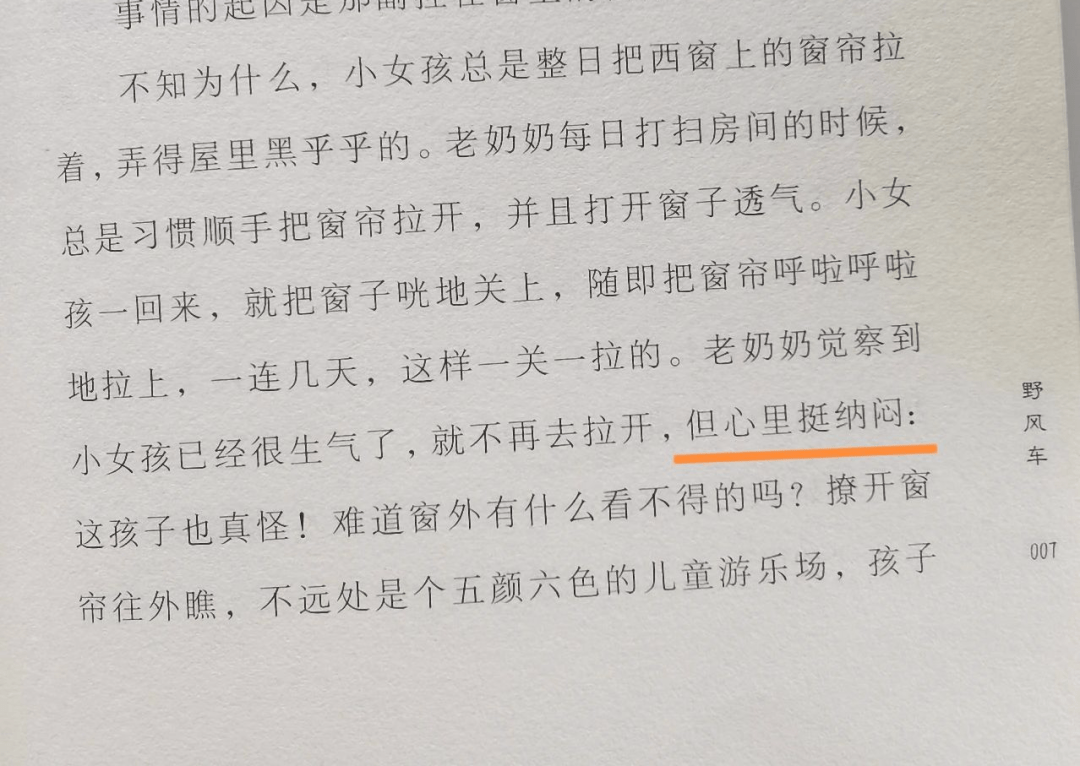 事情的起因是那副挂在窗
不知为什么，小女孩总是整日把西窗上的窗帘拉
着，弄得屋里黑乎乎的。老奶奶每日打扫房间的时候，
总是习惯顺手把窗帘拉开，并且打开窗子透气。小女
孩一回来，就把窗子咣地关上，随即把窗帘呼啦呼啦
地拉上，一连几天，这样一关一拉的。老奶奶觉察到
小女孩已经很生气了，就不再去拉开，但心里挺纳闷：
这孩子也真怪！难道窗外有什么看不得的吗？撩开窗
帘往外瞧，不远处是个五颜六色的儿童游乐场，孩子
野风车
007